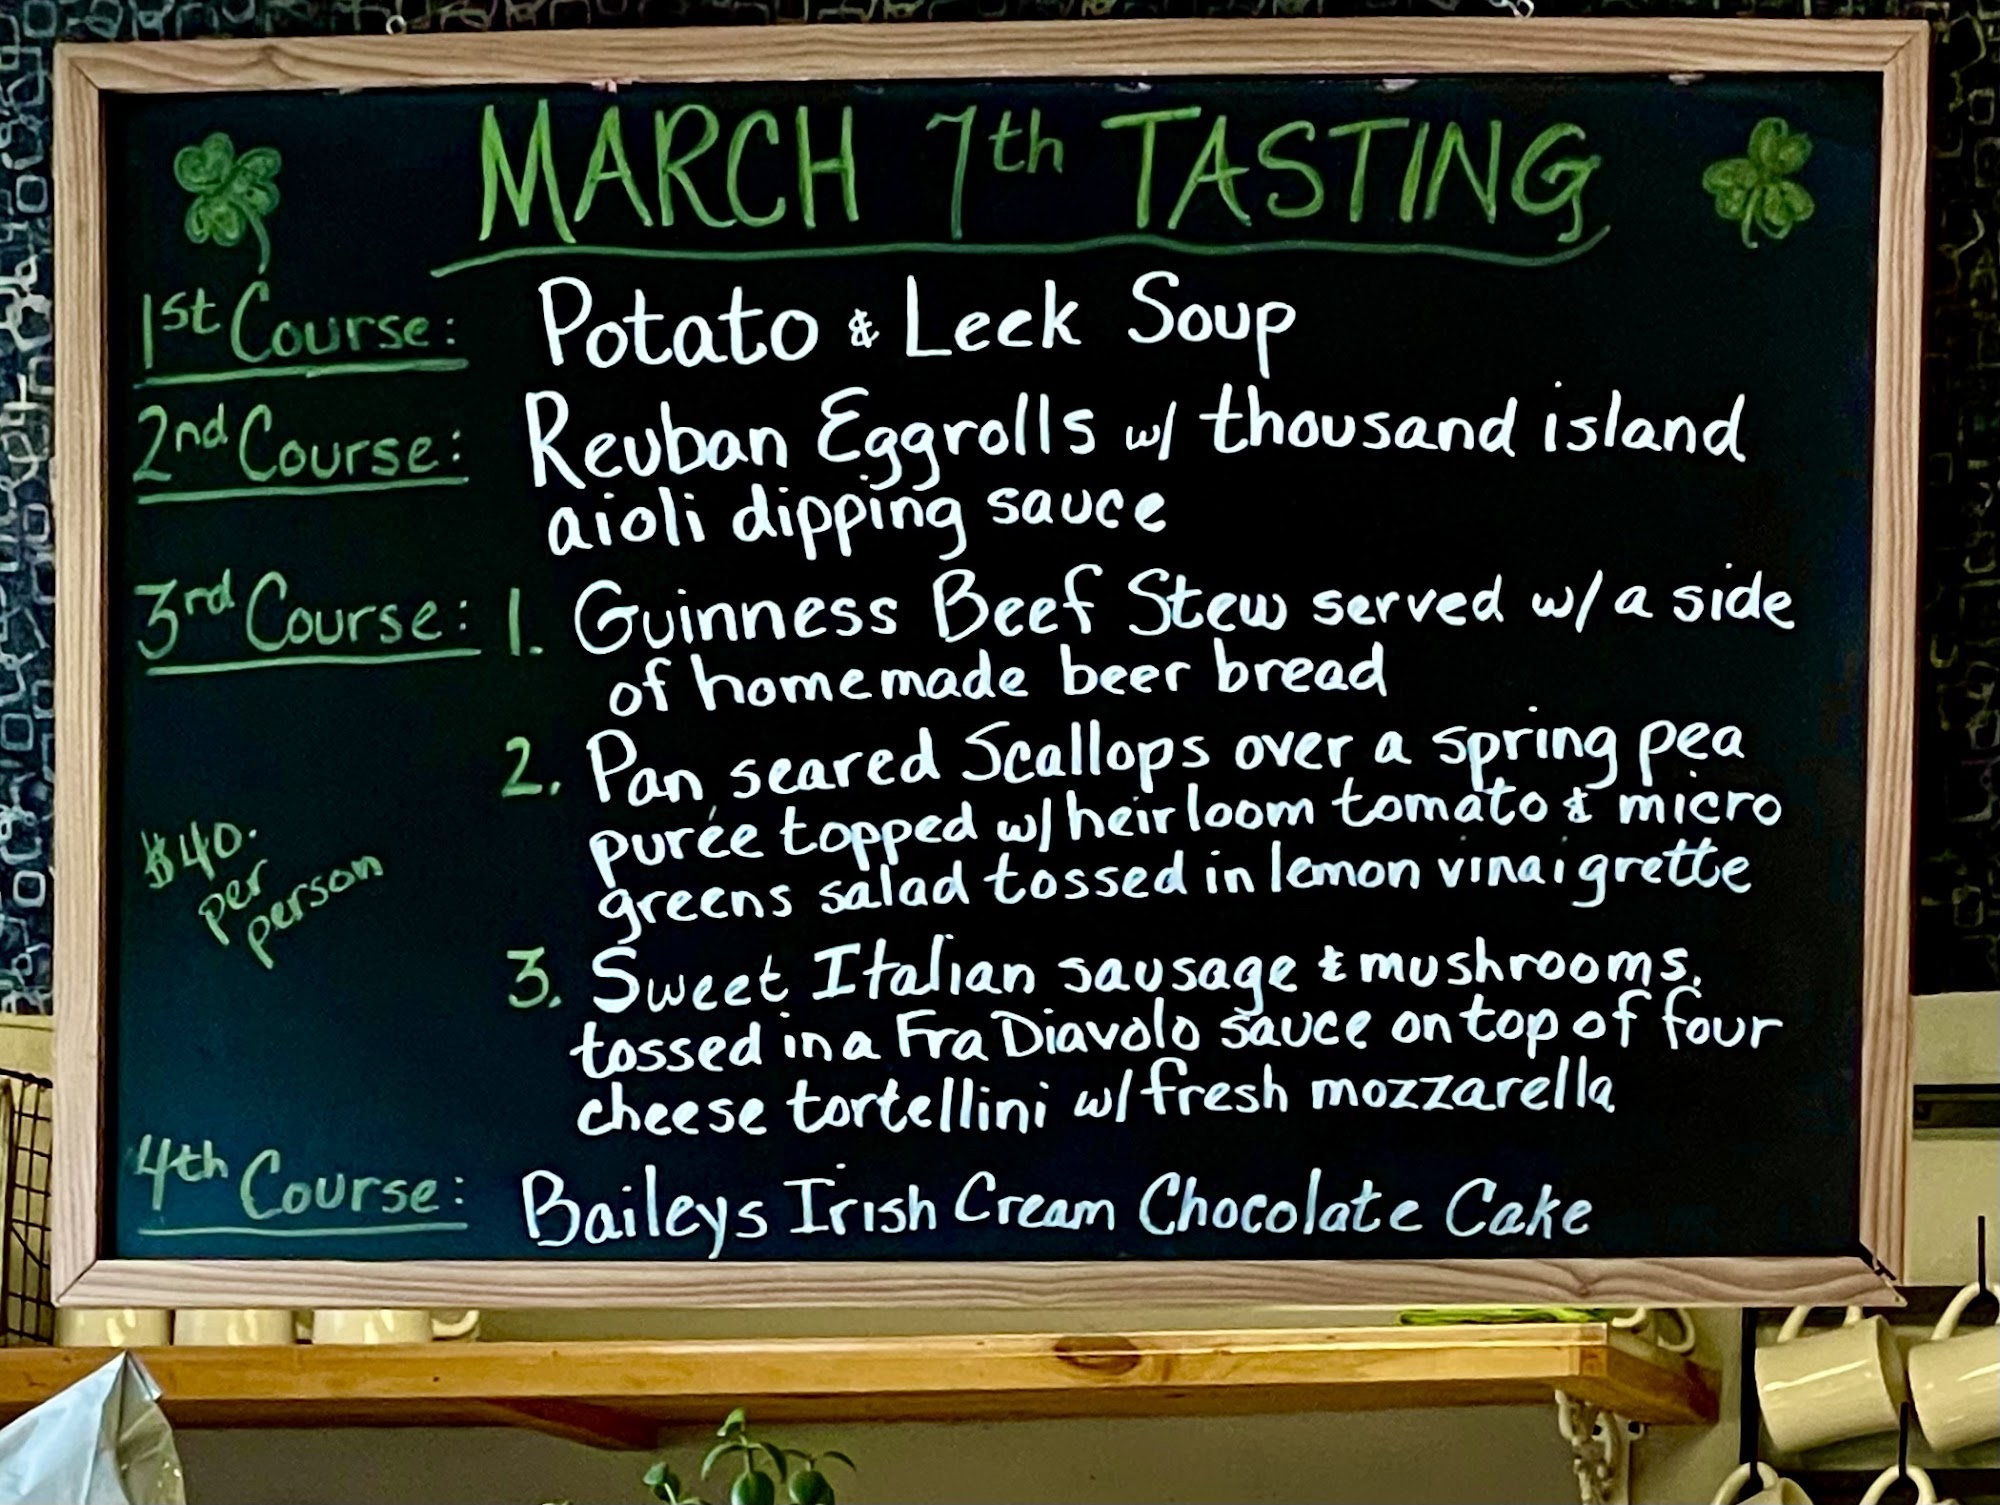 MARCH 7th TASTING
1st Course: Potato & Leek Soup
2nd Course: Reuban Eggrolls w/ thousand island
aioli dipping sauce
3rd Course: 1. Guinness Beef Stew served w/ a side
of homemade beer bread
2. Pan seared Scallops over a spring pea
purée topped w/ heirloom tomato & micro
greens salad tossed in lemon vinaigrette
3. Sweet Italian sausage & mushrooms.
tossed in a Fra Diavolo sauce on top of four
cheese tortellini w/ fresh mozzarella
$40.
per
person
4th Course: Baileys Irish Cream Chocolate Cake